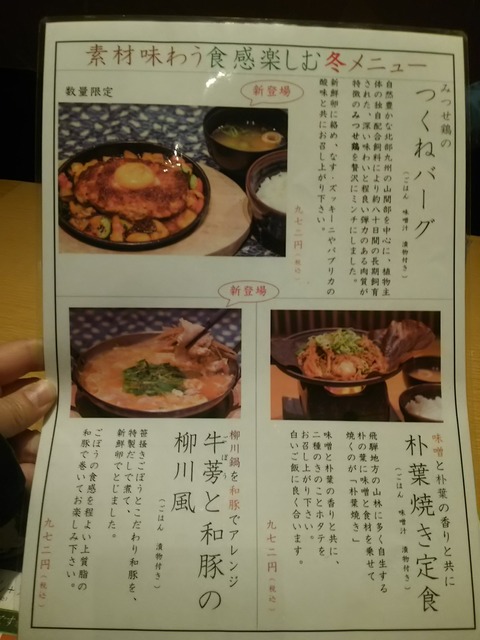 素材味わう食感楽しむ冬メニュー
数量限定
新登場
みつせ鶏の
つくねバーグ
(ごはん 味噌汁 漬物付き)
自然豊かな北部九州の山間部を中心に、植物主
体の独自配合飼料により約八十日間の長期飼育
された、深い味わいと程良い弾力のある肉質が
特徴のみつせ鶏を贅沢にミンチにしました。
新鮮卵に絡め、なす・ズッキーニやパプリカの
酸味と共にお召し上がり下さい。
九七二円(税込)
新登場
味噌と朴葉の香りと共に
朴葉焼き定食
(ごはん 味噌汁 漬物付き)
飛騨地方の山林に多く自生する
朴の葉に「味噌と食材を乗せて
焼くのが「朴葉焼き」
味噌と朴葉の香りと共に、
二種のきのことホタテを
お召し上がり下さい。
白いご飯に良く合います。
九七二円(税込)
柳川鍋を和豚でアレンジ
牛蒡と和豚の
ごぼう
柳川風
(ごはん 漬物付き)
笹掻きごぼうとこだわり和豚を、
特製だしで煮て、
新鮮卵でとじました。
ごぼうの食感を程よい上質脂の
和豚で巻いてお楽しみ下さい。
九七二円(税込)